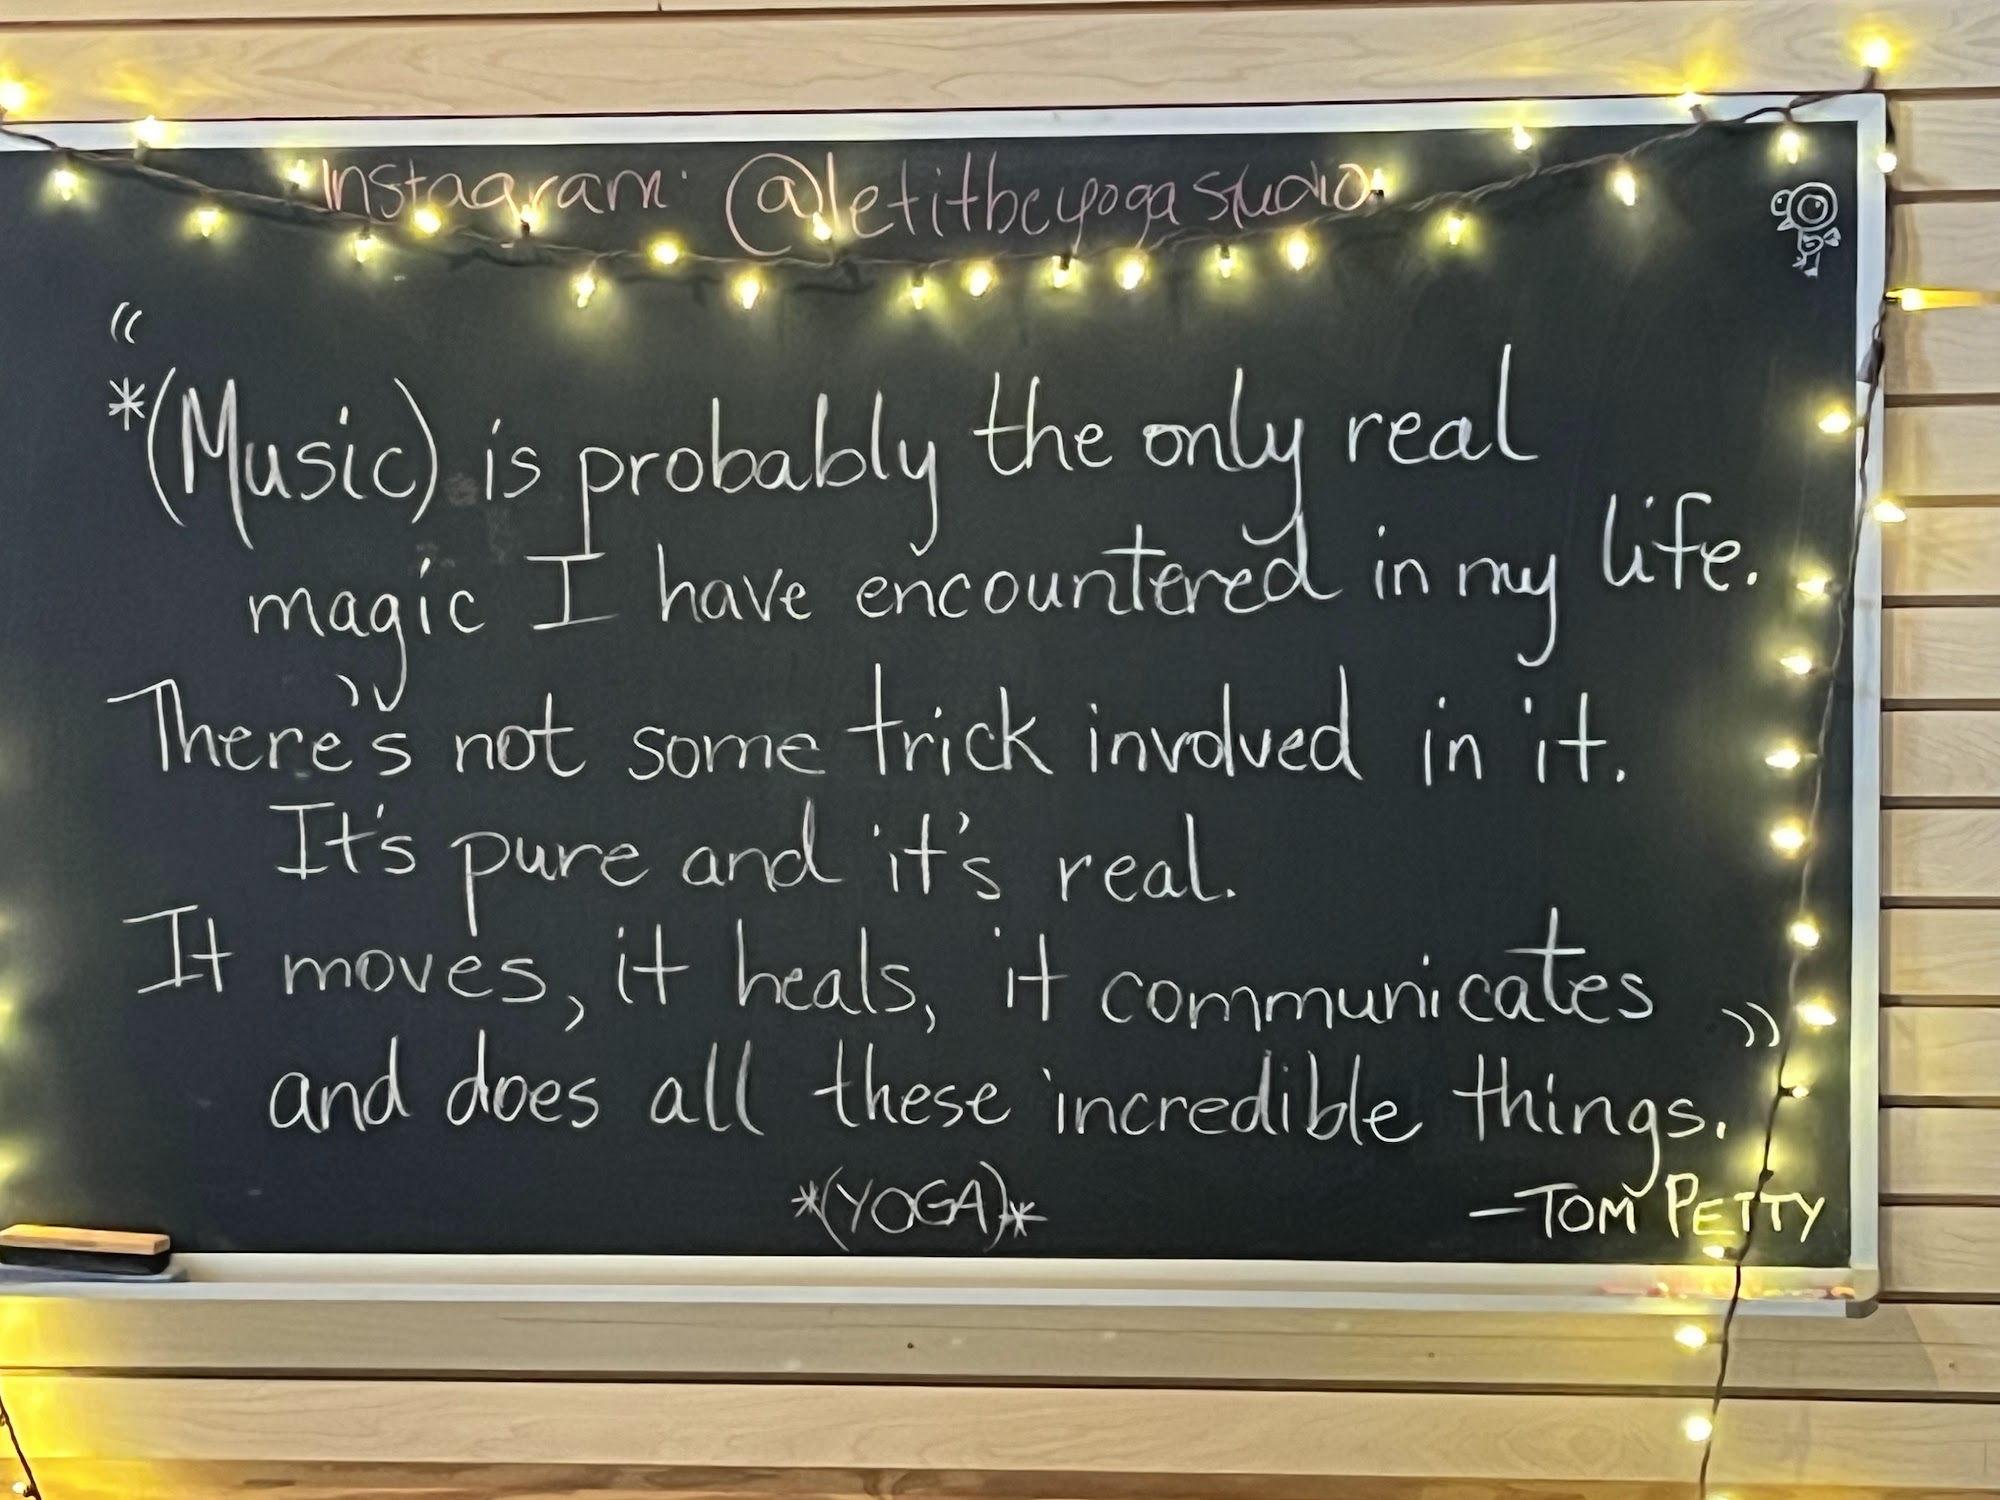 Instagram: @letitbeyogastudio
“
*(Music) is probably the only real
magic I have encountered in my life.
There's not some trick involved in it.
It's pure and it's real.
It moves, it heals, it communicates
and does all these incredible things.”
*(YOGA)*
-TOM PETTY